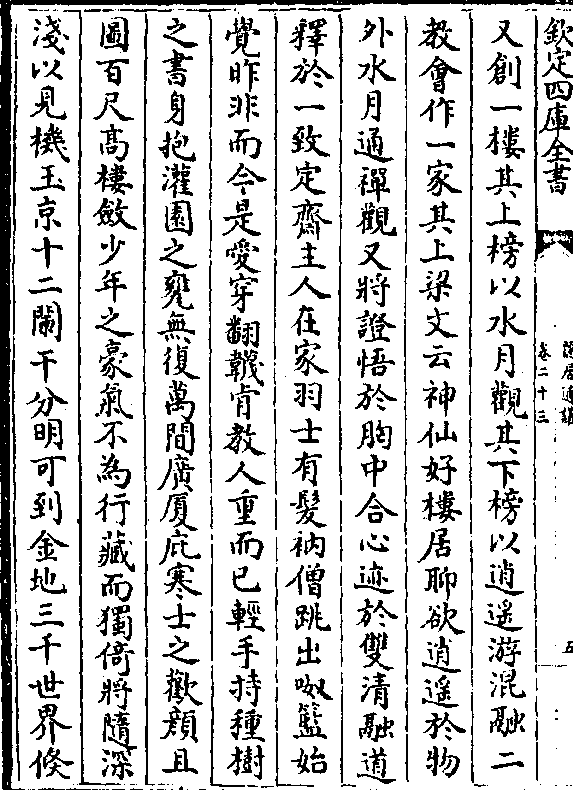 欽定四庫全書
隱居通議
卷二十三
五
又創一樓其上榜以水月觀其下榜以逍遥游混融二
教會作一家其上梁文云神仙好樓居聊欲逍遥於物
外水月通禪觀又將證悟於胸中合心迹於雙清融道
釋於一致定齋主人在家羽士有髮衲僧跳出啾籃始
覺昨非而今是愛穿翻韈肯教人重而已輕手持種樹
之書身抱灌園之甕無復萬間廣厦庇寒士之歡顔且
圖百尺高樓斂少年之豪氣不為行藏而獨倚將隨深
淺以見機玉京十二闌干分明可到金地三千世界倏